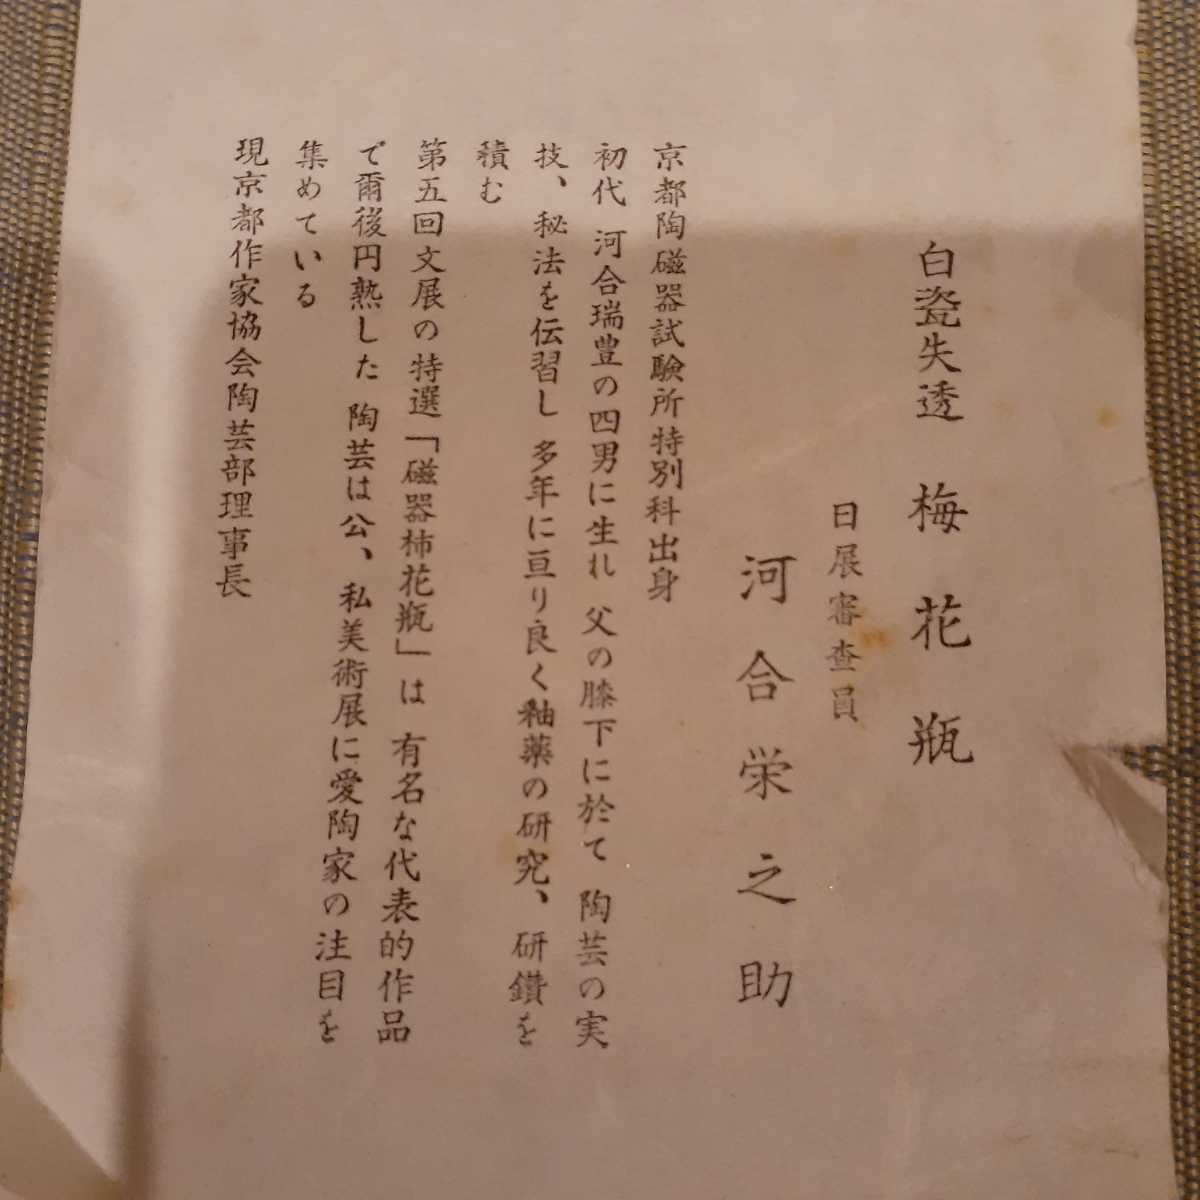 白瓷失透　梅花瓶
日展審査員
河合栄之助
京都陶磁器試験所特別科出身
初代　河合瑞豊の四男に生れ　父の膝下に於て　陶芸の実
技、秘法を伝習し　多年に亘り良く釉薬の研究、研鑽を
積む
第五回文展の特選「磁器柿花瓶」は　有名な代表的作品
で爾後円熟した　陶芸は公、私美術展に愛陶家の注目を
集めている
現京都作家協会陶芸部理事長